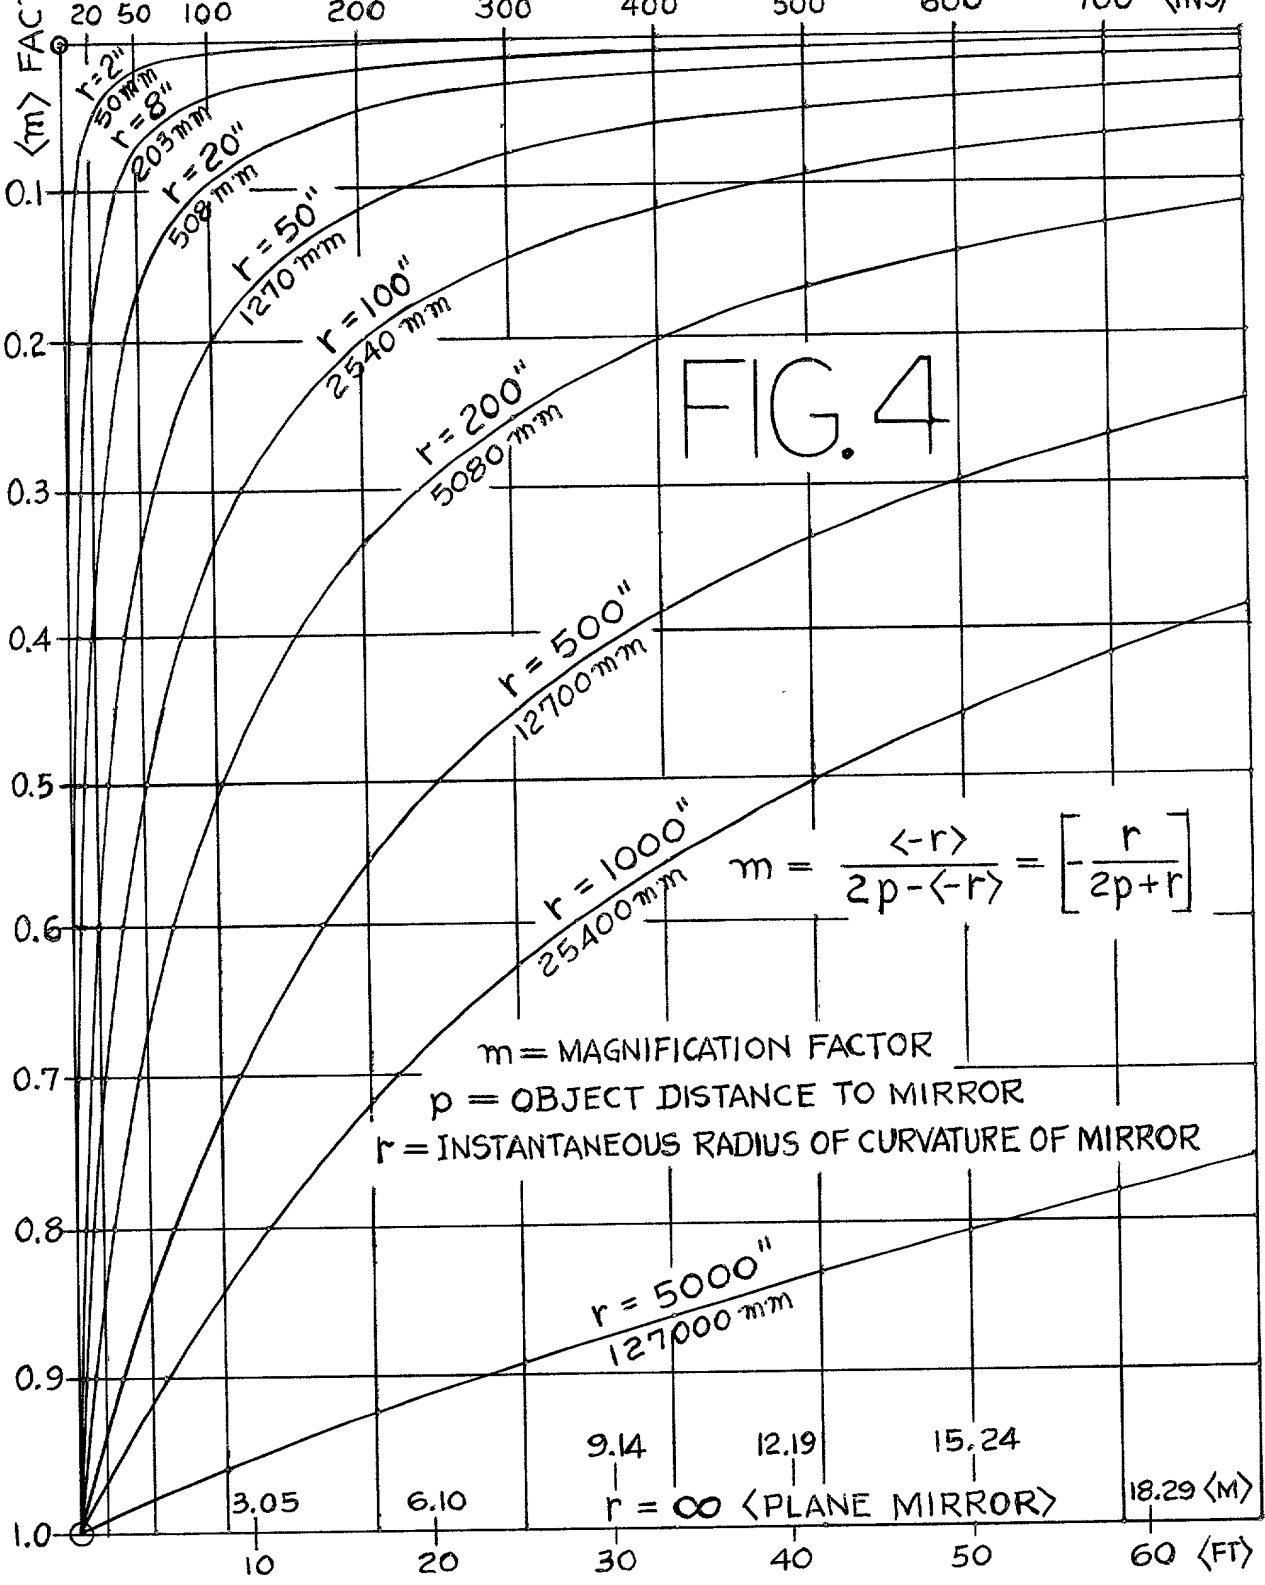 20 50 100 200 300 400 500 600 700 <INS>
<m> FAC
r=2"
50mm
r=8"
203mm
r=20"
508mm
r=50"
1270mm
r=100"
2540mm
r=200"
5080mm
r=500"
12700mm
r=1000"
25400mm
r=5000"
127000mm
0.1
0.2
0.3
0.4
0.5
0.6
0.7
0.8
0.9
1.0
FIG. 4
m = <-r> / 2p-<-r> = [- r / 2p+r]
m = MAGNIFICATION FACTOR
p = OBJECT DISTANCE TO MIRROR
r = INSTANTANEOUS RADIUS OF CURVATURE OF MIRROR
3.05 6.10 9.14 12.19 15.24 18.29 <M>
r = ∞ <PLANE MIRROR>
10 20 30 40 50 60 <FT>